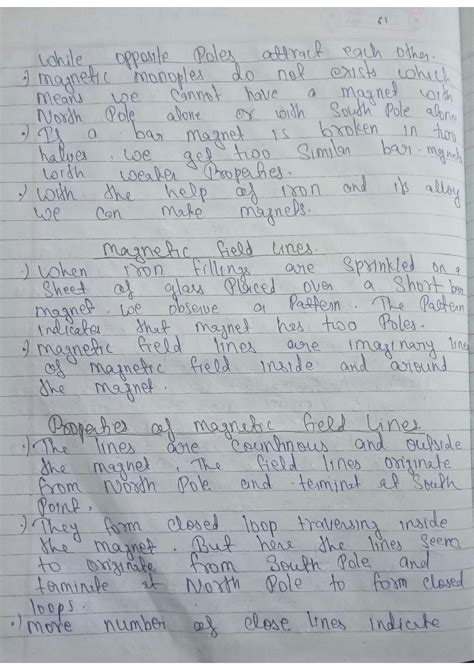 61
while opposite Poles attract each other.
•) magnetic monoples do not exists which
means we cannot have a magnet with
North Pole alone or with South Pole alone
•) If a bar magnet is broken in two
halves, we get two Similar bar magnets
with weaker Properties.
•) with the help of iron and its alloy
we can make magnets.
Magnetic field lines.
•) when iron fillings are Sprinkled on a
Sheet of glass Placed over a Short bar
magnet. we observe a Pattern. The Pattern
indicates that magnet has two Poles.
•) magnetic field lines are imaginary lines
of magnetic field inside and around
the magnet.
Properties of magnetic field lines
•) The lines are countinous and outside
the magnet, The field lines originate
from North Pole and terminat at South
Point.
•) They form closed loop traversing inside
the magnet. But here the lines seem
to originate from South Pole and
terminate at North Pole to form closed
loops.
•) more number of close lines indicate